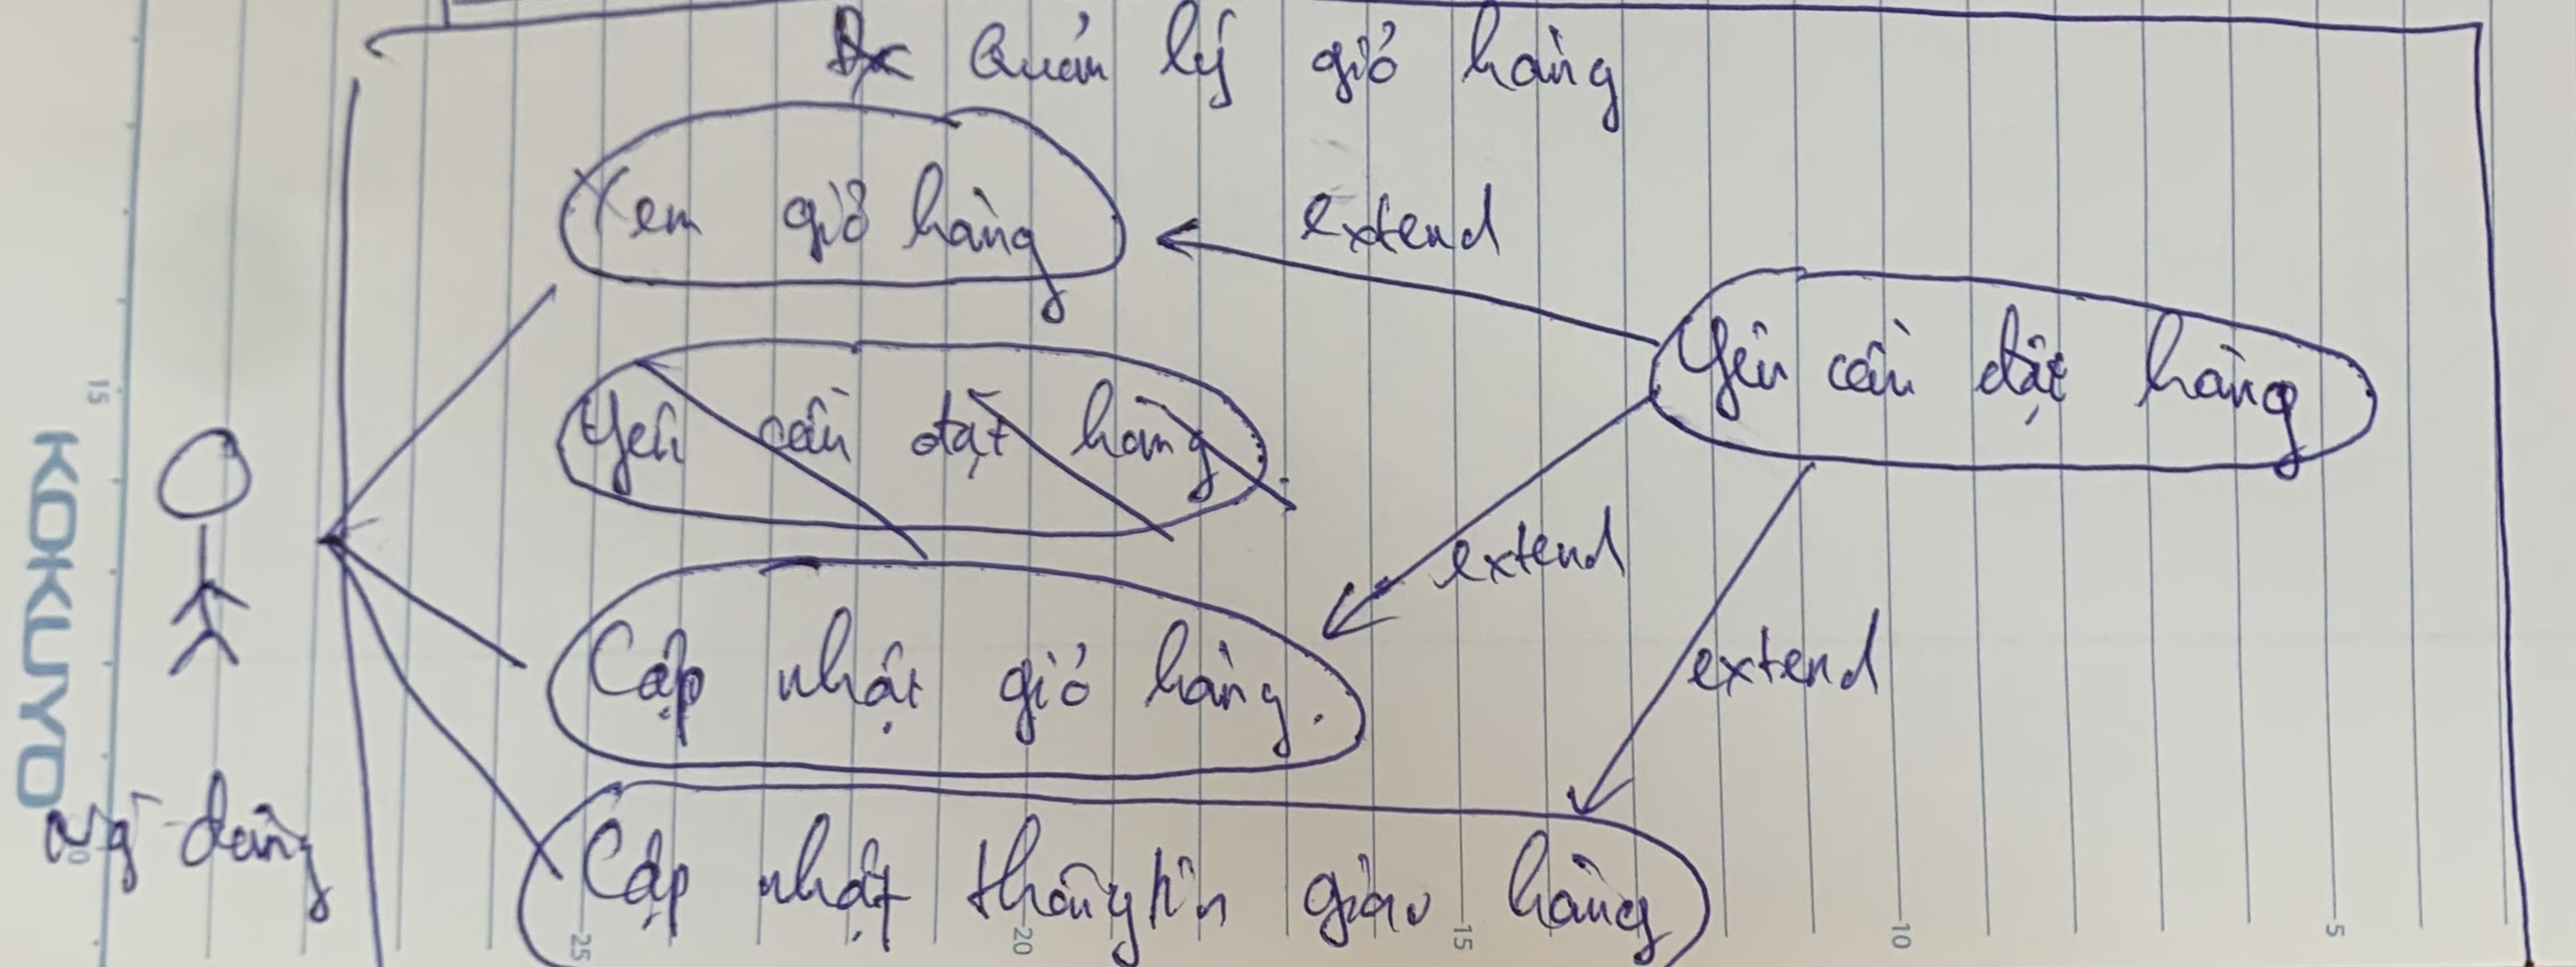 Quản lý giỏ hàng
Xem giỏ hàng
extend
Yêu cầu đặt hàng
Yêu cầu đặt hàng
extend
Cập nhật giỏ hàng.
extend
Cập nhật thông tin giao hàng
ng dùng
KOKUYO
15
20
25
20
15
10
5